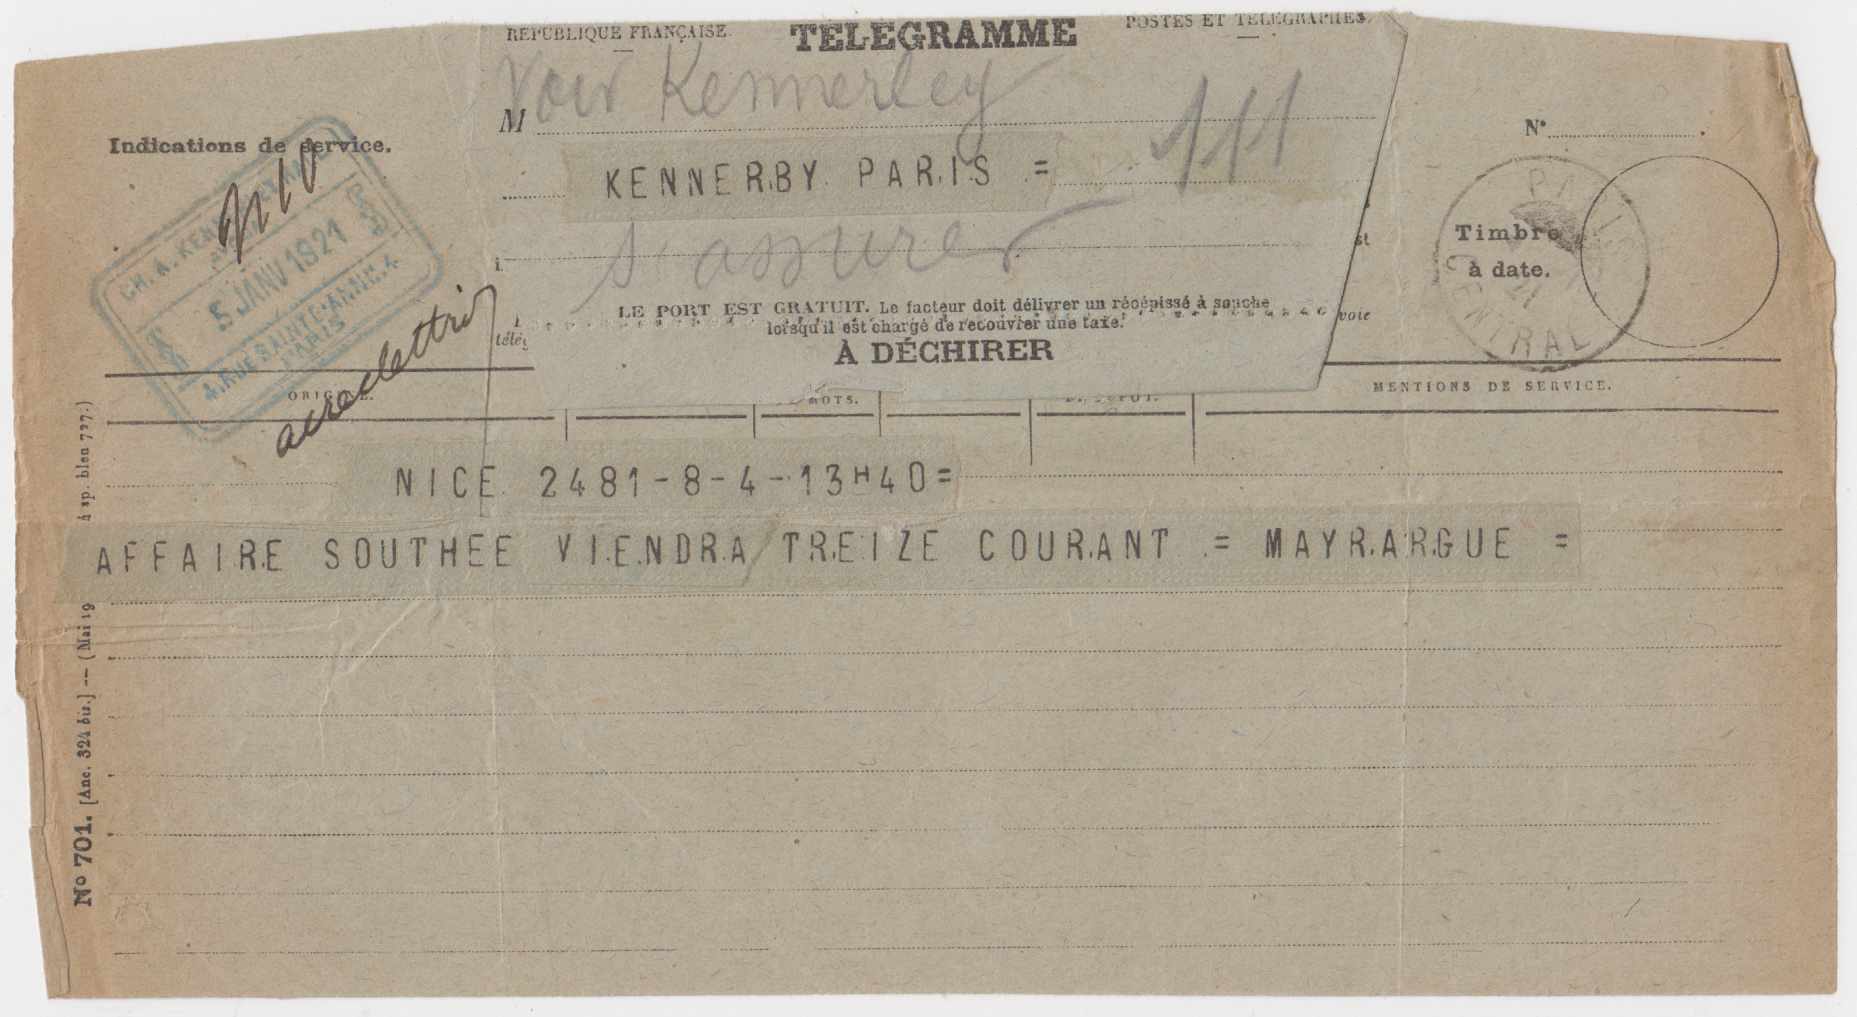 RÉPUBLIQUE FRANÇAISE. TÉLÉGRAMME POSTES ET TÉLÉGRAPHES.
Voir Kennerley
M
111
Indications de service.
N°
KENNERBY PARIS =
CH. A. KEN
5 JANV 1921
4. RUE SAINTE-ANNE. 4
PARIS
s'assurer
Timbre
à date.
PARIS
21
CENTRAL
LE PORT EST GRATUIT. Le facteur doit délivrer un récépissé à souche
lorsqu'il est chargé de recouvrer une taxe.
voie
À DÉCHIRER
ORIGINE. MOTS. DE DÉPOT. MENTIONS DE SERVICE.
NICE 2481-8-4-13H40=
AFFAIRE SOUTHEE VIENDRA TREIZE COURANT = MAYRARGUE =
N° 701. [Anc. 324 bis.] — (Mai 19